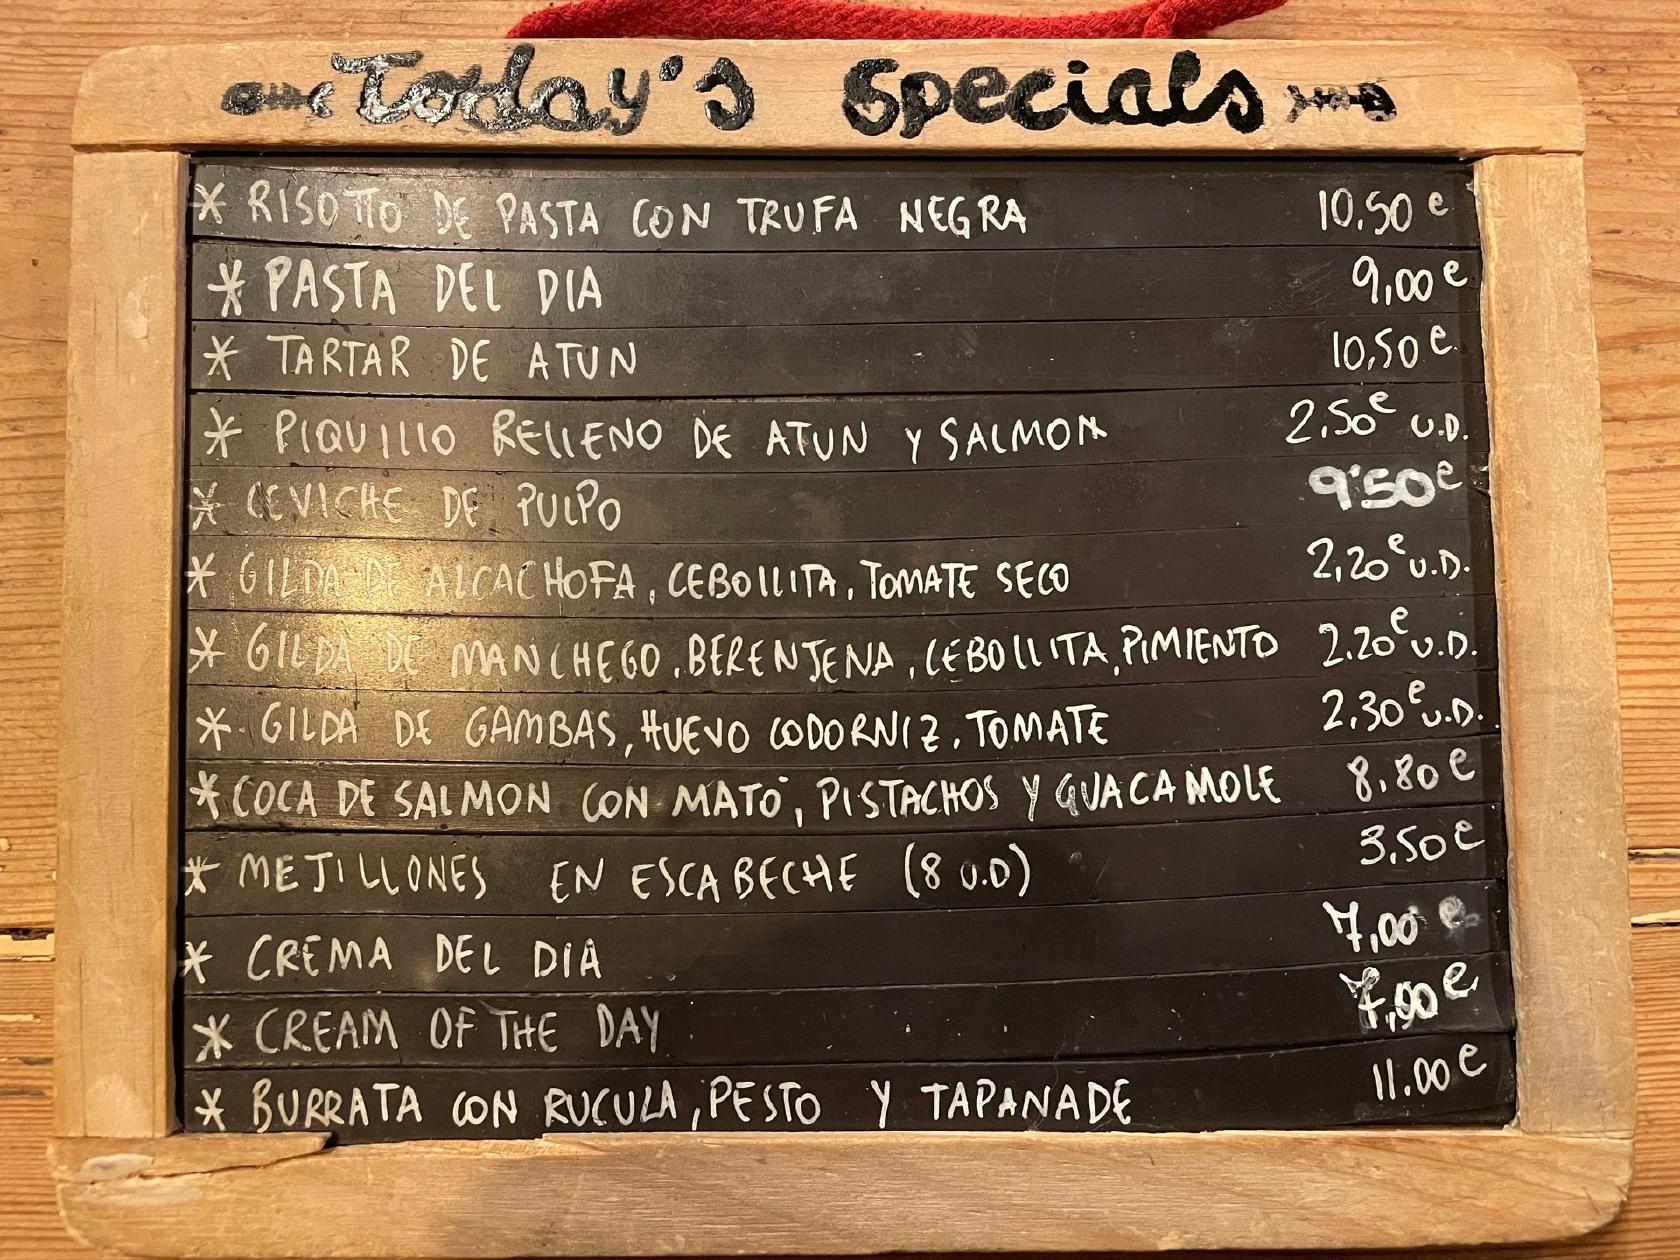 Today's Specials
* RISOTTO DE PASTA CON TRUFA NEGRA 10,50 €
* PASTA DEL DIA 9,00 €
* TARTAR DE ATUN 10,50 €
* PIQUILLO RELLENO DE ATUN Y SALMON 2,50 € U.D.
* CEVICHE DE PULPO 9'50 €
* GILDA DE ALCACHOFA, CEBOLLITA, TOMATE SECO 2,20 € U.D.
* GILDA DE MANCHEGO, BERENJENA, CEBOLLITA, PIMIENTO 2.20 € U.D.
* GILDA DE GAMBAS, HUEVO CODORNIZ, TOMATE 2.30 € U.D.
* COCA DE SALMON CON MATÓ, PISTACHOS Y GUACAMOLE 8,80 €
* MEJILLONES EN ESCABECHE (8 U.D) 3.50 €
* CREMA DEL DIA 7,00 €
* CREAM OF THE DAY 7,00 €
* BURRATA CON RUCULA, PESTO Y TAPANADE 11.00 €